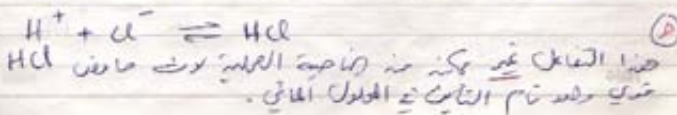 H⁺ + Cl⁻ ⇌ HCl
هذا التفاعل غير ممكن من الناحية العملية لأن حامض HCl
قوي وهو تام التأين في المحلول المائي.